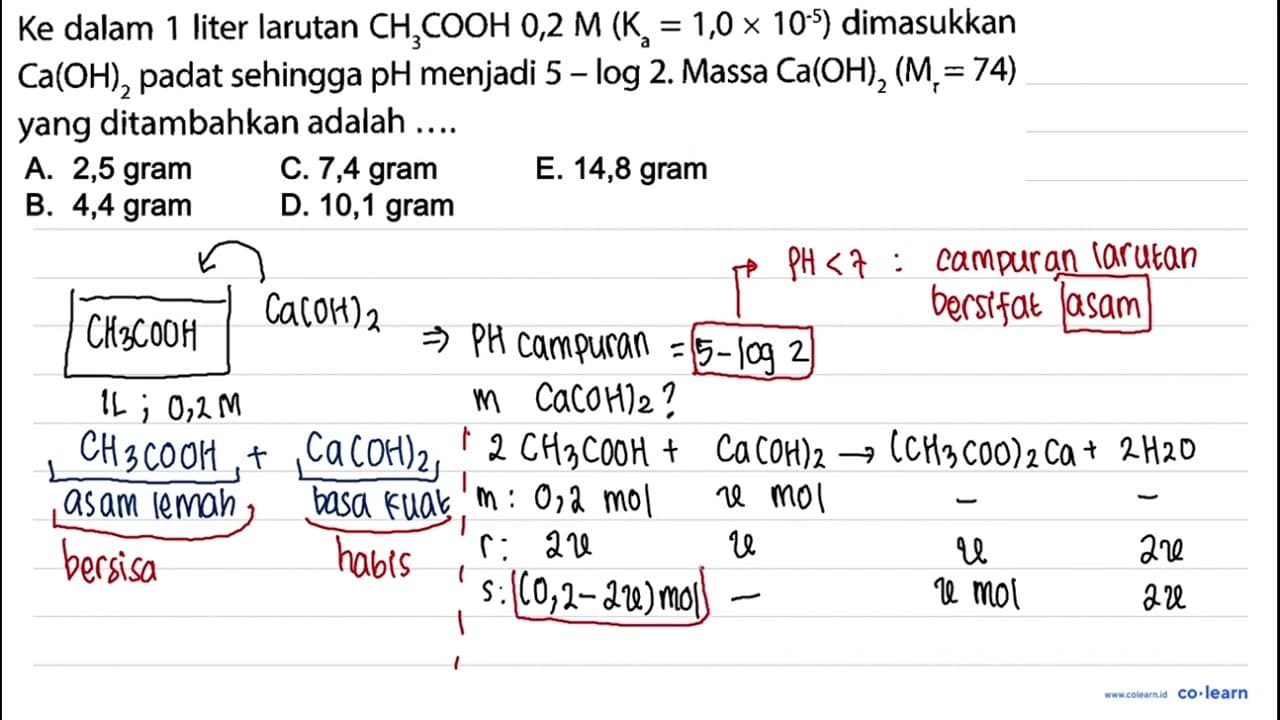 Ke dalam 1 liter larutan CH₃COOH 0,2 M (Kₐ = 1,0 × 10⁻⁵) dimasukkan
Ca(OH)₂ padat sehingga pH menjadi 5 – log 2. Massa Ca(OH)₂ (Mᵣ = 74)
yang ditambahkan adalah ....
A. 2,5 gram C. 7,4 gram E. 14,8 gram
B. 4,4 gram D. 10,1 gram
PH < 7 : campuran larutan
bersifat asam
CH3COOH Ca(OH)2
⇒ PH campuran = 5 – log 2
1L ; 0,2 M
m Ca(OH)2 ?
CH3COOH + Ca(OH)2
asam lemah basa kuat
bersisa habis
2 CH3COOH + Ca(OH)2 → (CH3COO)2Ca + 2H2O
m : 0,2 mol x mol – –
r : 2x x x 2x
s : (0,2 – 2x) mol – x mol 2x
www.colearn.id co·learn